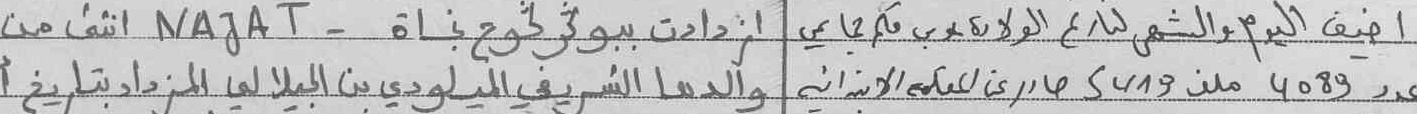 اضيف اليوم والشهر لتاريخ الولادة بموجب حكم جماعي
عدد 4089 ملف 5419 صادر عن المحكمة الابتدائية
ازدادت ببوكركوح نجاة - NAJAT انثى من
والدها الشريفي الميلودي بن الجيلالي المزداد بتاريخ